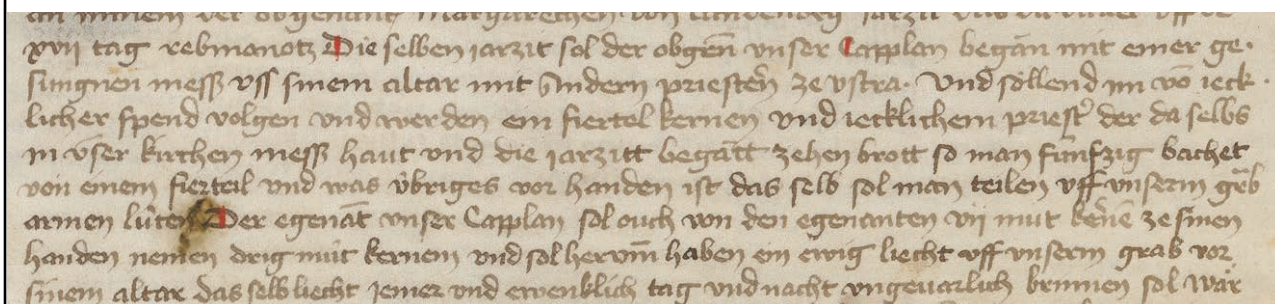 xvij tag rebmanotz Die selben jarzit sol der obgen̄ vnser Capplan began mit einer ge-
sungnen mess vff sinem altar mit andern priestern̄ ze vstra. Vnd söllend im vō ieck-
licher spend volgen vnd werden ein fiertel kernen vnd iecklichem priest̄ der da selbs
in v̄ser kirchen mess haut vnd die jarzitt begātt zehen brott so man fünfzig bachet
von einem fierteil vnd was übriges vor handen ist das selb sol man teilen vff vnserm grab
armen lüten Der egenāt vnser Capplan sol ouch von den egenanten vij mut kernē ze sinen
handen nemen drig müt kernem vnd sol hervm̄ haben ein ewig liecht vff vnserm grab vor
sinem altar das selb liecht jemer vnd ewenklich tag vnd nacht vngeuarlich brinnen sol wär